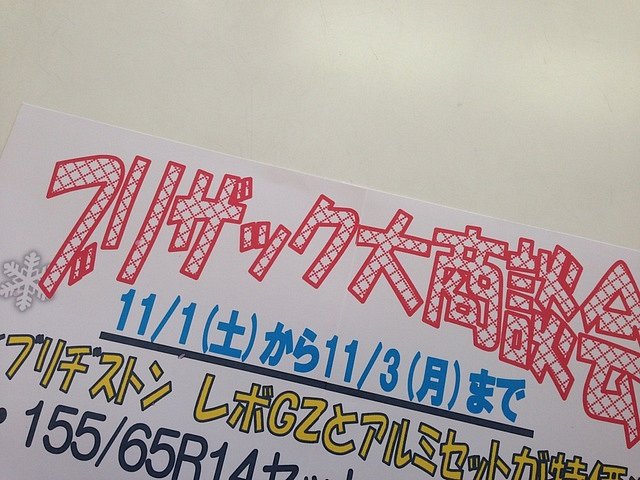 ブリザック大商談会
11/1(土)から11/3(月)まで
ブリヂストン レボGZとアルミセットが特価
・155/65R14セット